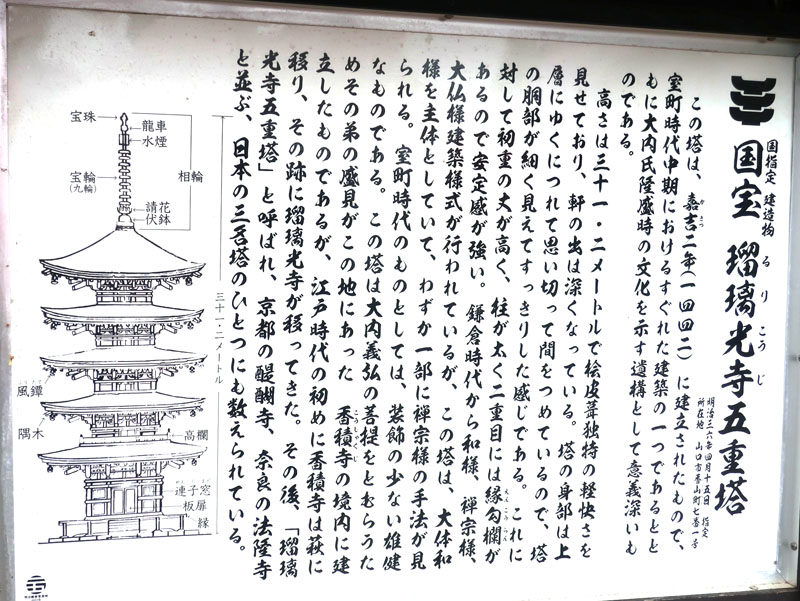 国指定 建造物
国宝 瑠璃光寺五重塔
る り こう じ
明治三六年四月十五日 指定
所在地 山口市香山町七番一号
この塔は、嘉吉二年(一四四二)に建立されたもので、
か きつ
室町時代中期におけるすぐれた建築の一つであるとと
もに大内氏隆盛時の文化を示す遺構として意義深いも
のである。
高さは三十一・二メートルで桧皮葺独特の軽快さを
見せており、軒の出は深くなっている。塔の身部は上
層にゆくにつれて思い切って間をつめているので、塔
の胴部が細く見えてすっきりした感じである。これに
対して初重の丈が高く、柱が太く二重目には縁勾欄が
えんこうらん
あるので安定感が強い。鎌倉時代から和様、禅宗様、
大仏様建築様式が行われているが、この塔は、大体和
様を主体としていて、わずか一部に禅宗様の手法が見
られる。室町時代のものとしては、装飾の少ない雄健
なものである。この塔は大内義弘の菩提をとむらうた
めその弟の盛見がこの地にあった香積寺の境内に建
こうしゃくじ
立したものであるが、江戸時代の初めに香積寺は萩に
移り、その跡に瑠璃光寺が移ってきた。その後、「瑠璃
光寺五重塔」と呼ばれ、京都の醍醐寺、奈良の法隆寺
と並ぶ、日本の三名塔のひとつにも数えられている。
三十一・二メートル
相輪
宝珠
龍車
水煙
宝輪
(九輪)
請花
伏鉢
風鐸
隅木
高欄
連子窓
板扉
縁